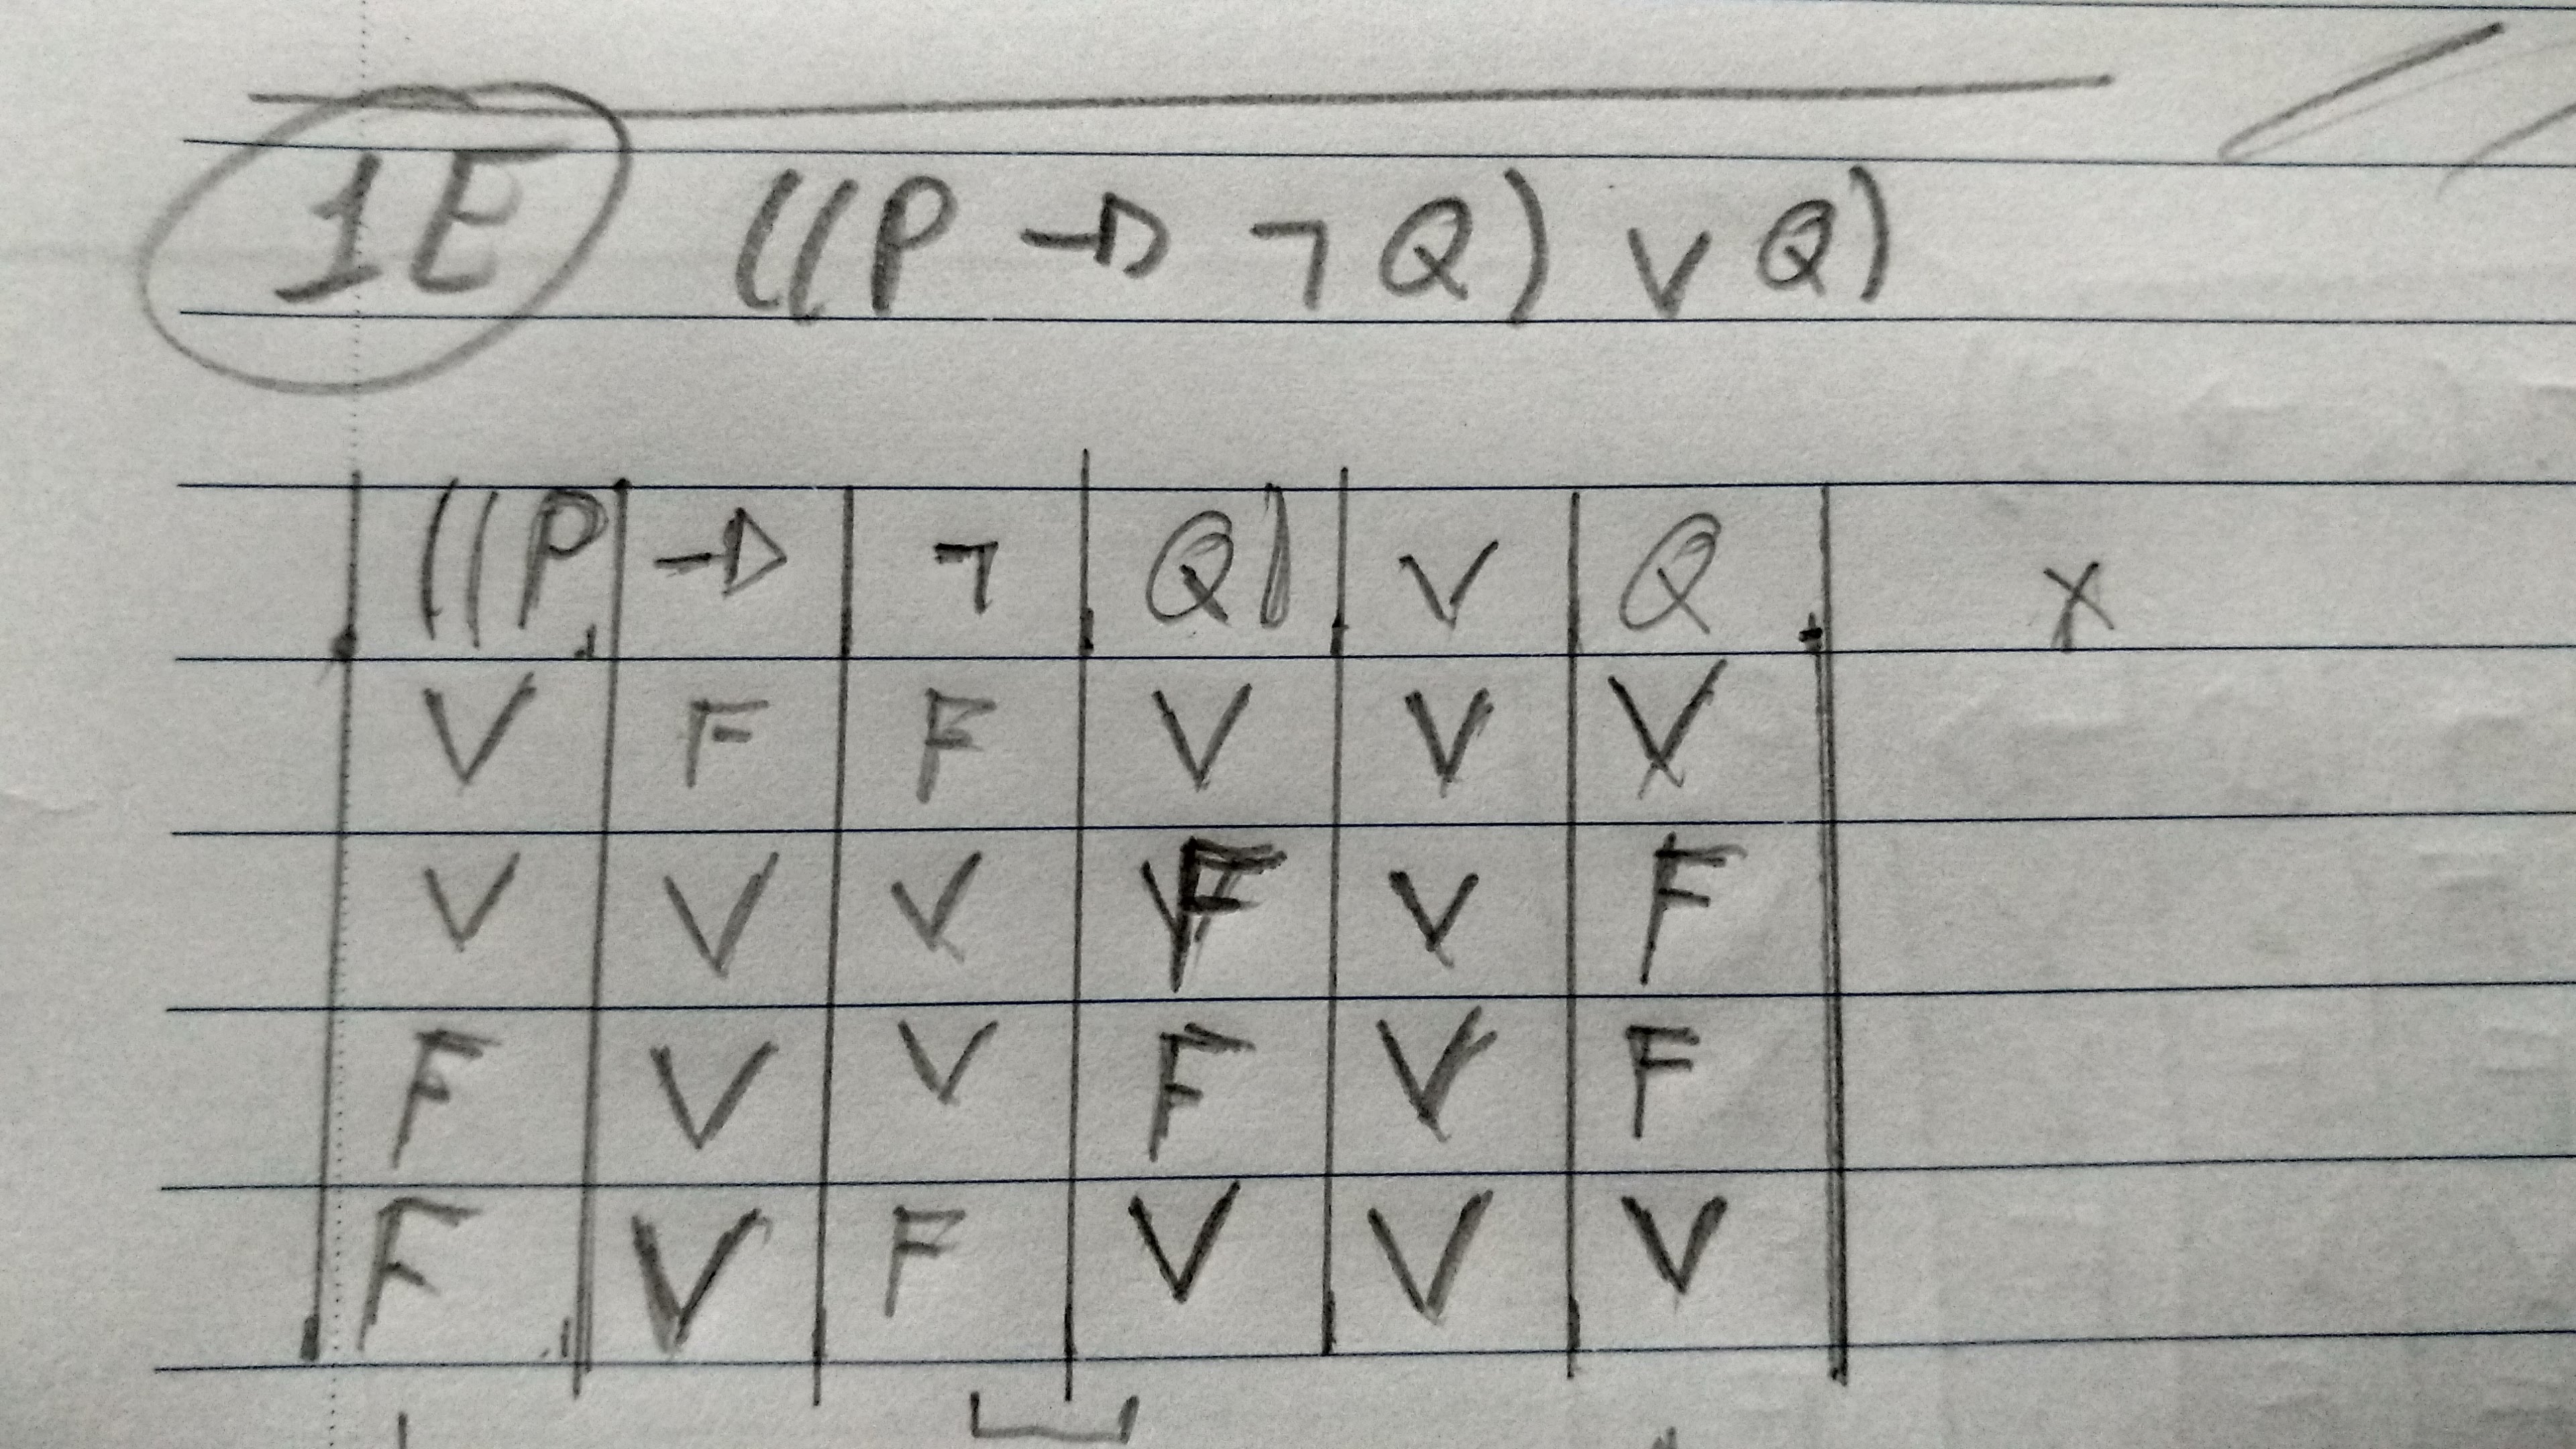 1E ((P → ¬ Q) ∨ Q)
((P → ¬ Q) ∨ Q X
V F F V V V
V V V F V F
F V V F V F
F V F V V V